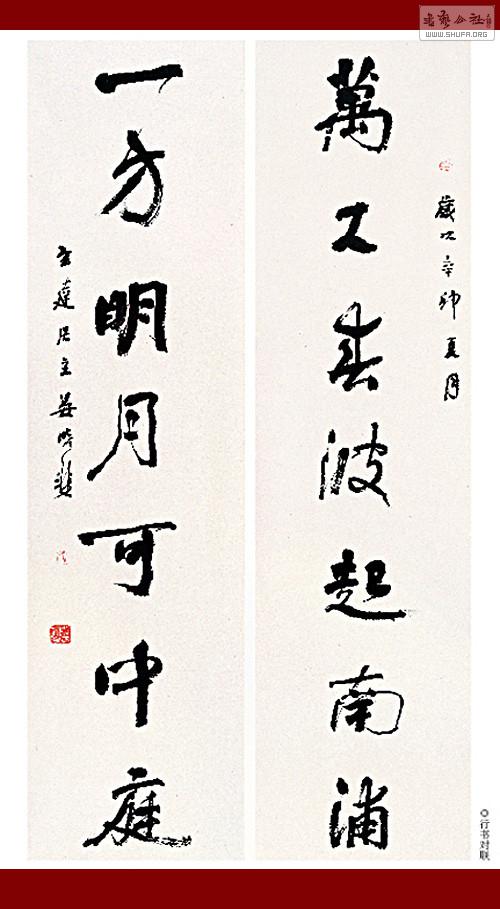 書藝公社
WWW.SHUFA.ORG
歲次辛卯夏月
萬春波起南浦
一方明月可中庭
居主
◎行书对联